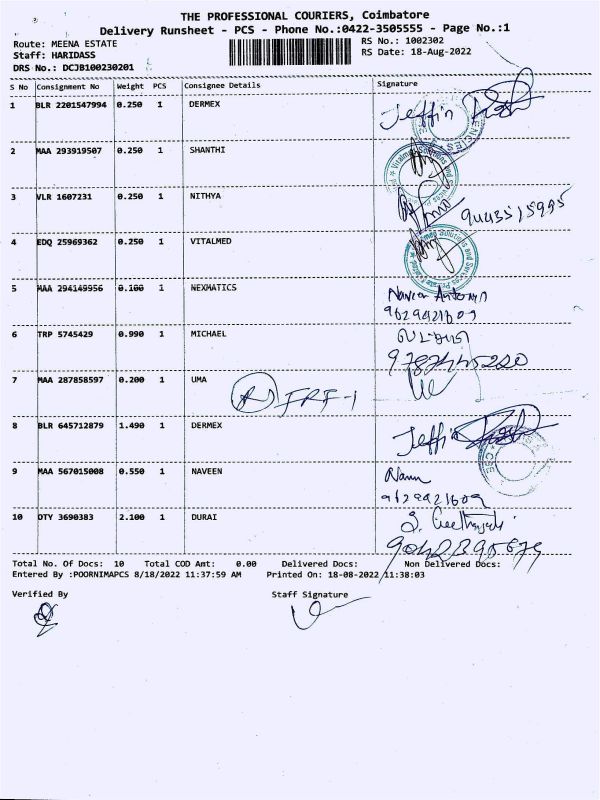 THE PROFESSIONAL COURIERS, Coimbatore
Delivery Runsheet - PCS - Phone No.:0422-3505555 - Page No.:1
Route: MEENA ESTATE
RS No.: 1002302
Staff: HARIDASS
RS Date: 18-Aug-2022
DRS No.: DCJB100230201
S No Consignment No Weight PCS Consignee Details Signature
1 BLR 2201547994 0.250 1 DERMEX Jeffin
2 MAA 293919507 0.250 1 SHANTHI
3 VLR 1607231 0.250 1 NITHYA
9443515995
4 EDQ 25969362 0.250 1 VITALMED
5 MAA 294149956 0.100 1 NEXMATICS Naveen Antony
9629921609
6 TRP 5745429 0.990 1 MICHAEL
7 MAA 287858597 0.200 1 UMA
8 BLR 645712879 1.490 1 DERMEX Jeffin
9 MAA 567015008 0.550 1 NAVEEN
9629921609
10 OTY 3690383 2.100 1 DURAI
Total No. Of Docs: 10 Total COD Amt: 0.00 Delivered Docs: Non Delivered Docs:
Entered By :POORNIMAPCS 8/18/2022 11:37:59 AM Printed On: 18-08-2022 11:38:03
Verified By Staff Signature